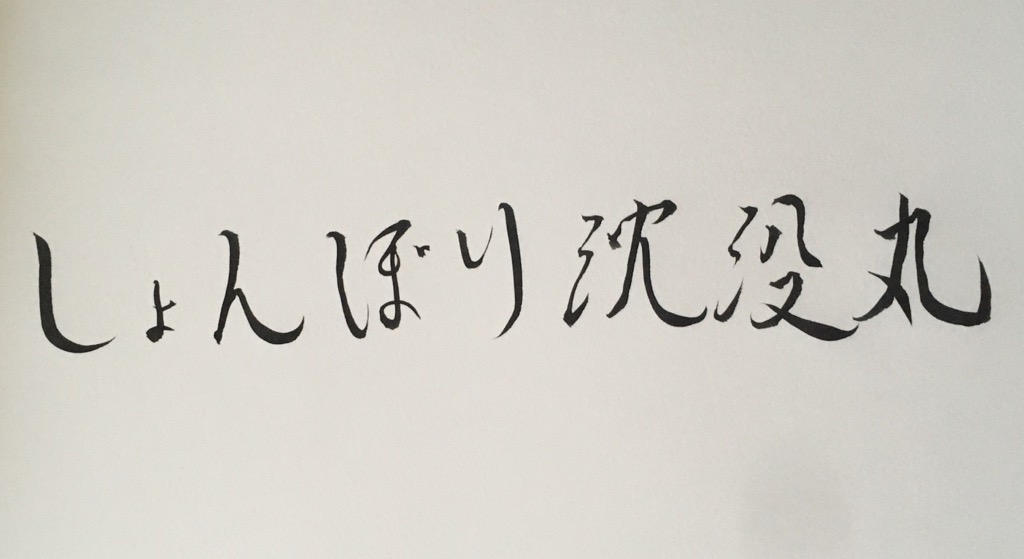 しょんぼり沈没丸